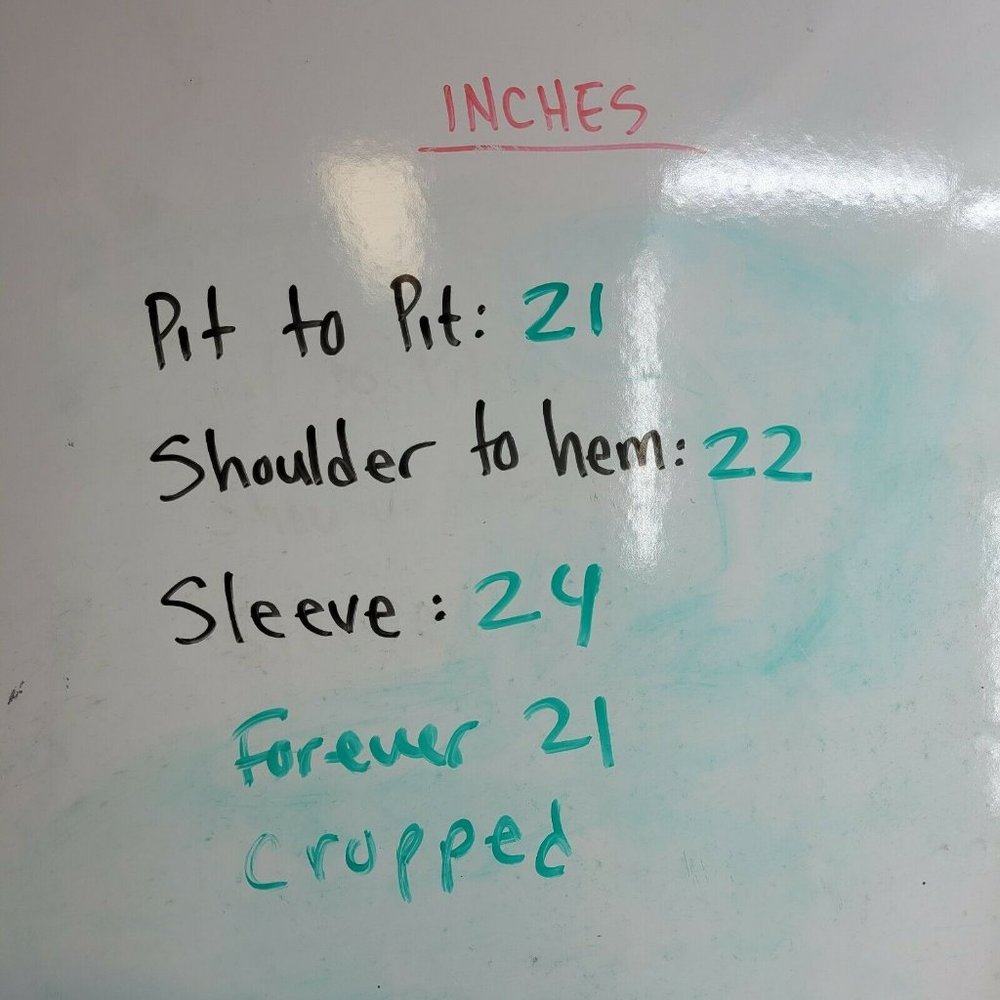 INCHES
Pit to Pit: 21
Shoulder to hem: 22
Sleeve: 24
Forever 21
cropped